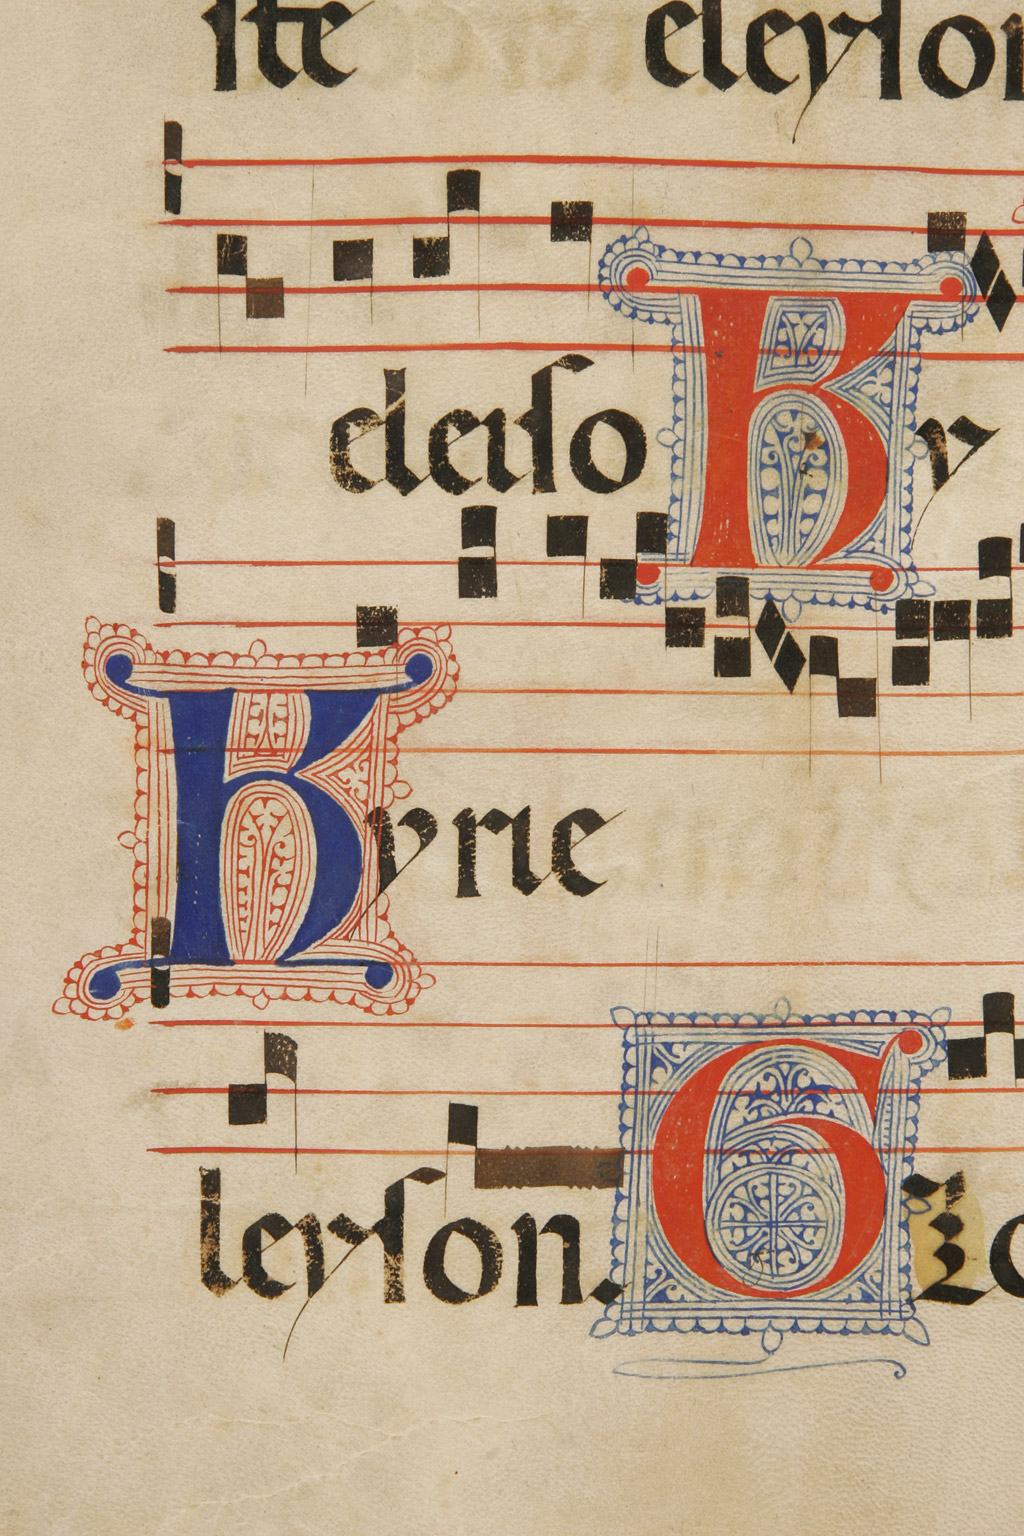 ste eleyson
eleiso Ky
Kyrie
leyson. G